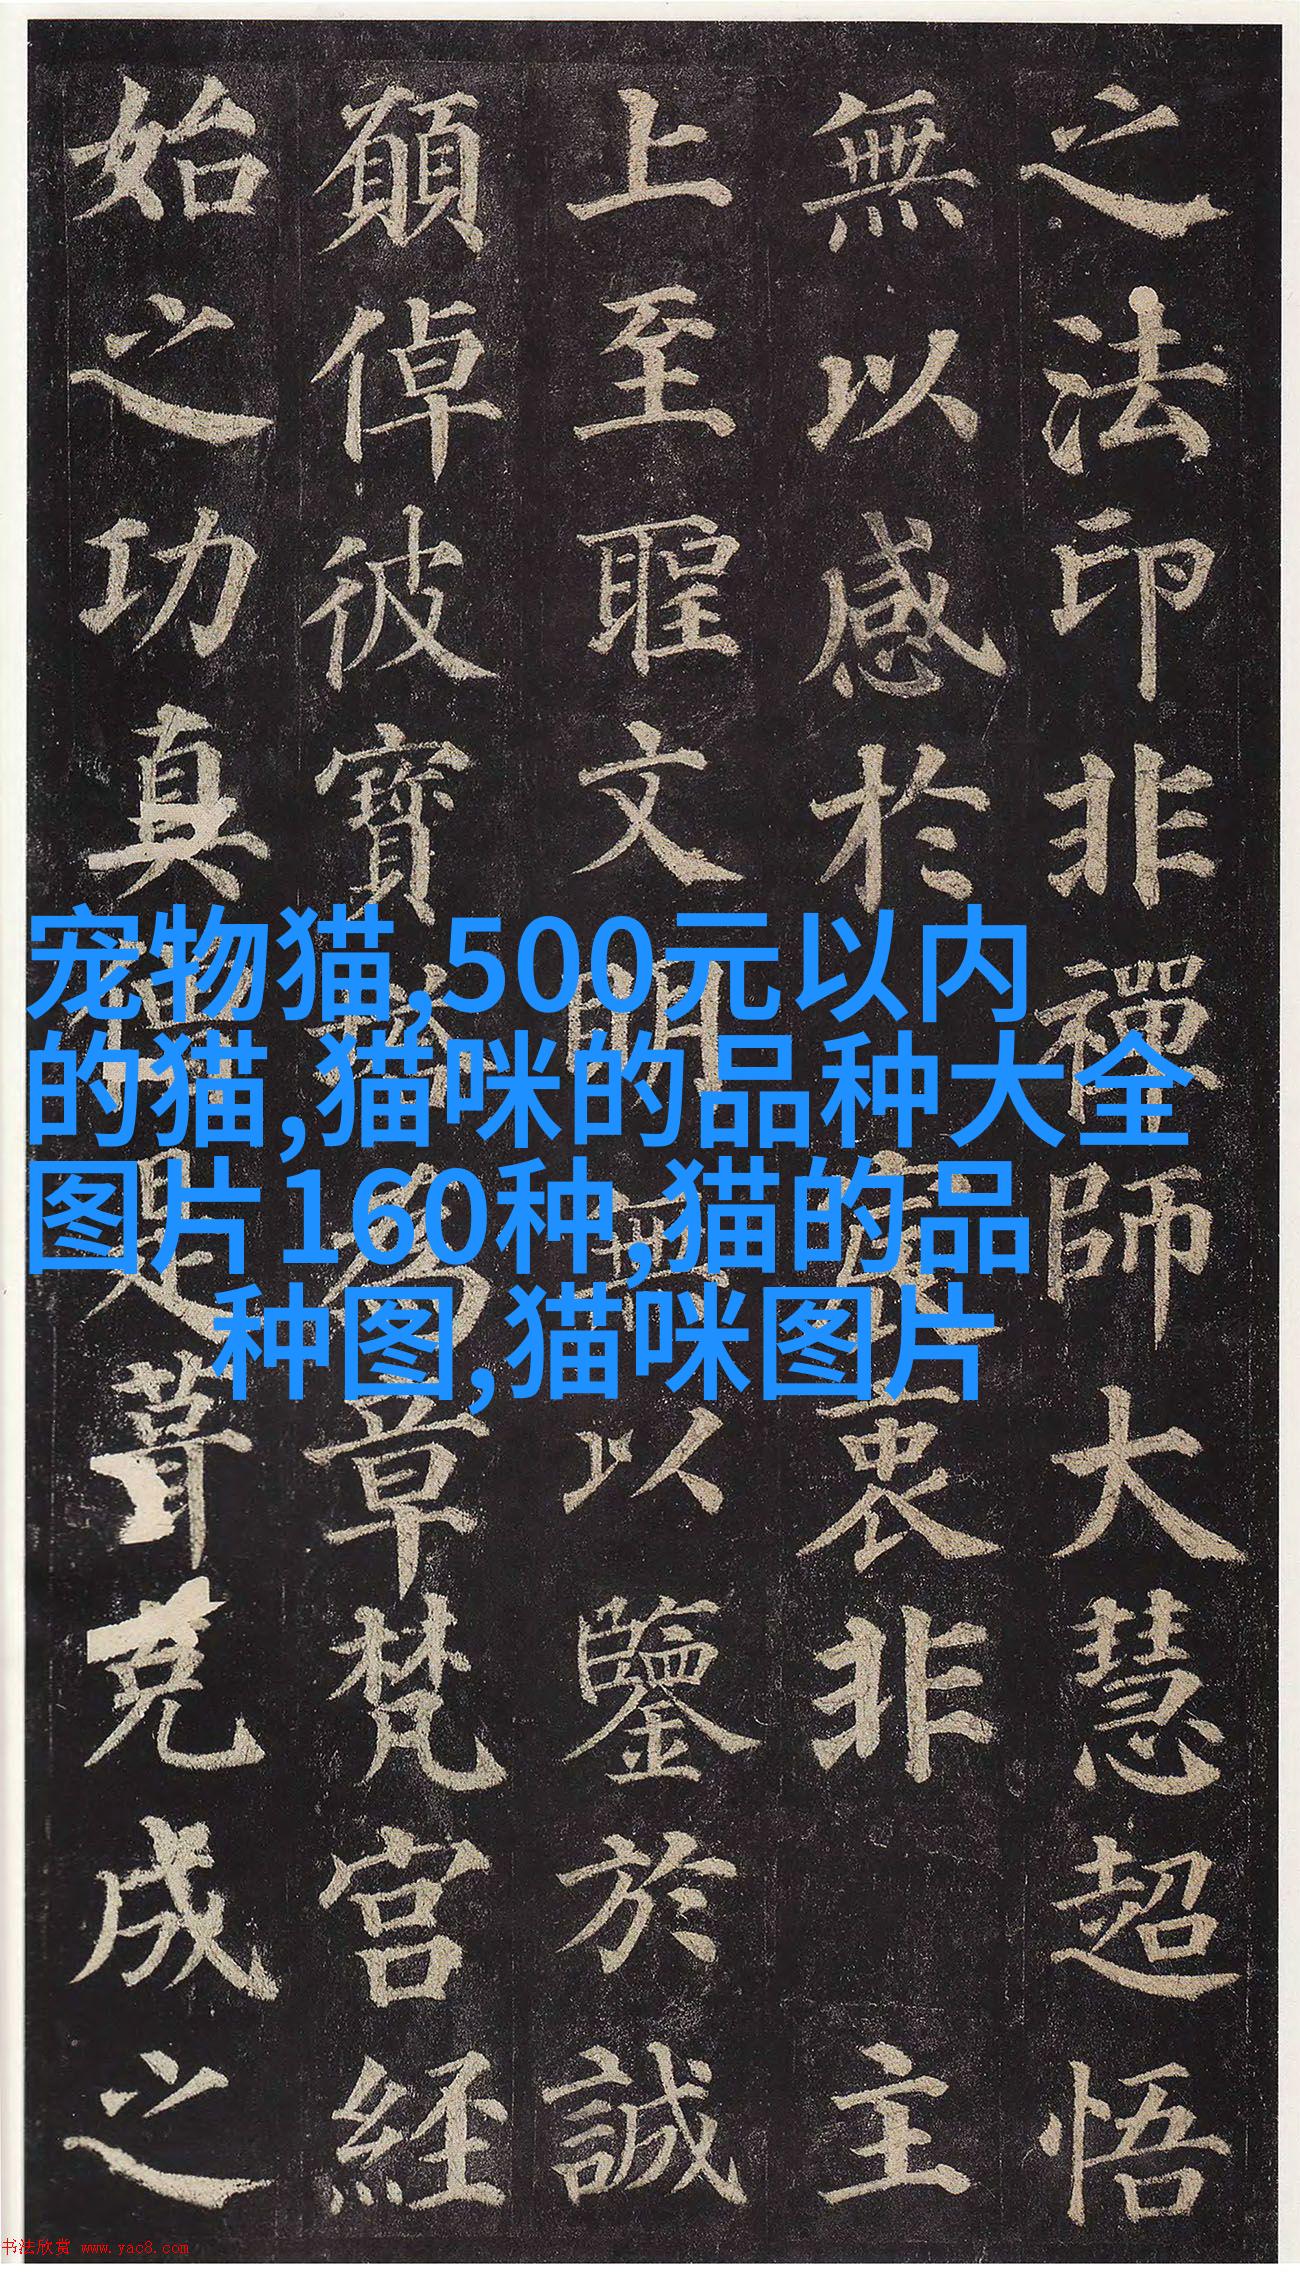 之法印非禪師大慧超悟
無以感於宸衷非主
上至聖文明無以鑒於誠
願倬彼寶塔為章梵宮經
始之功真僧是葺克成之
宠物猫,500元以内
的猫,猫咪的品种大全
图片160种,猫的品
种图,猫咪图片
书法欣赏 www.yac8.com